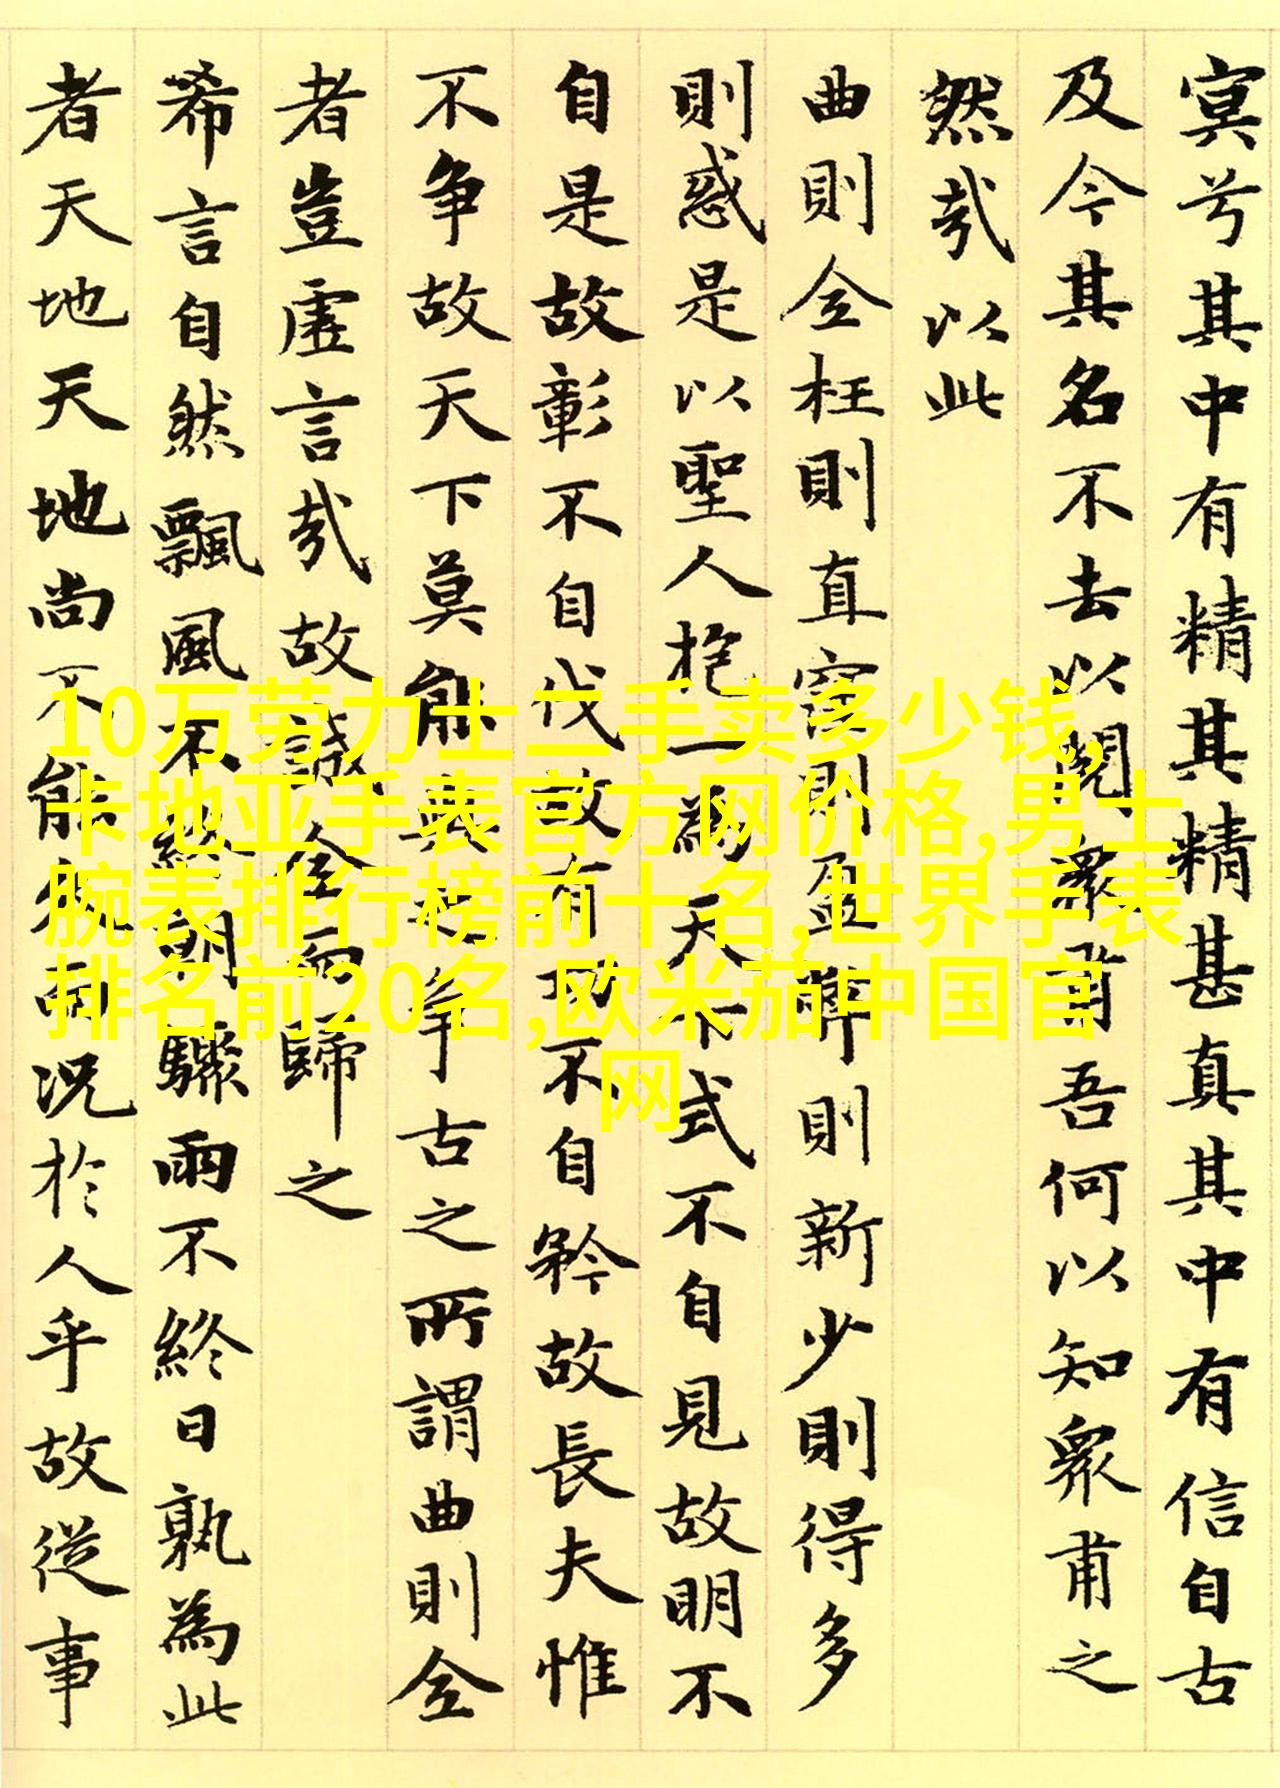 冥兮其中有精其精甚真其中有信自古
及今其名不去以閱衆甫吾何以知衆甫之
然哉以此
曲則全枉則直窪則盈弊則新少則得多
則惑是以聖人抱一為天下式不自見故明不
自是故彰不自伐故有功不自矜故長夫惟
不争故天下莫能與之争古之所謂曲則全
者豈虛言哉故誠全而歸之
希言自然飄風不終朝驟雨不終日孰為此
者天地天地尚不能久而况於人乎故從事
10万劳力士二手卖多少钱,
卡地亚手表官方网价格,男士
腕表排行榜前十名,世界手表
排名前20名,欧米茄中国官
网